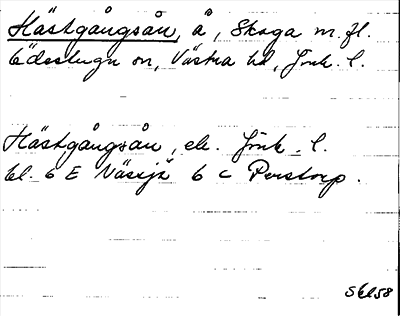 Hästgångsån, å, Skoga m. fl.
Ödestugu sn, Västra hd, Jönk. l.
Hästgångsån, ek. Jönk. l.
bl. 6 E Nässjö 6 c Perstorp.